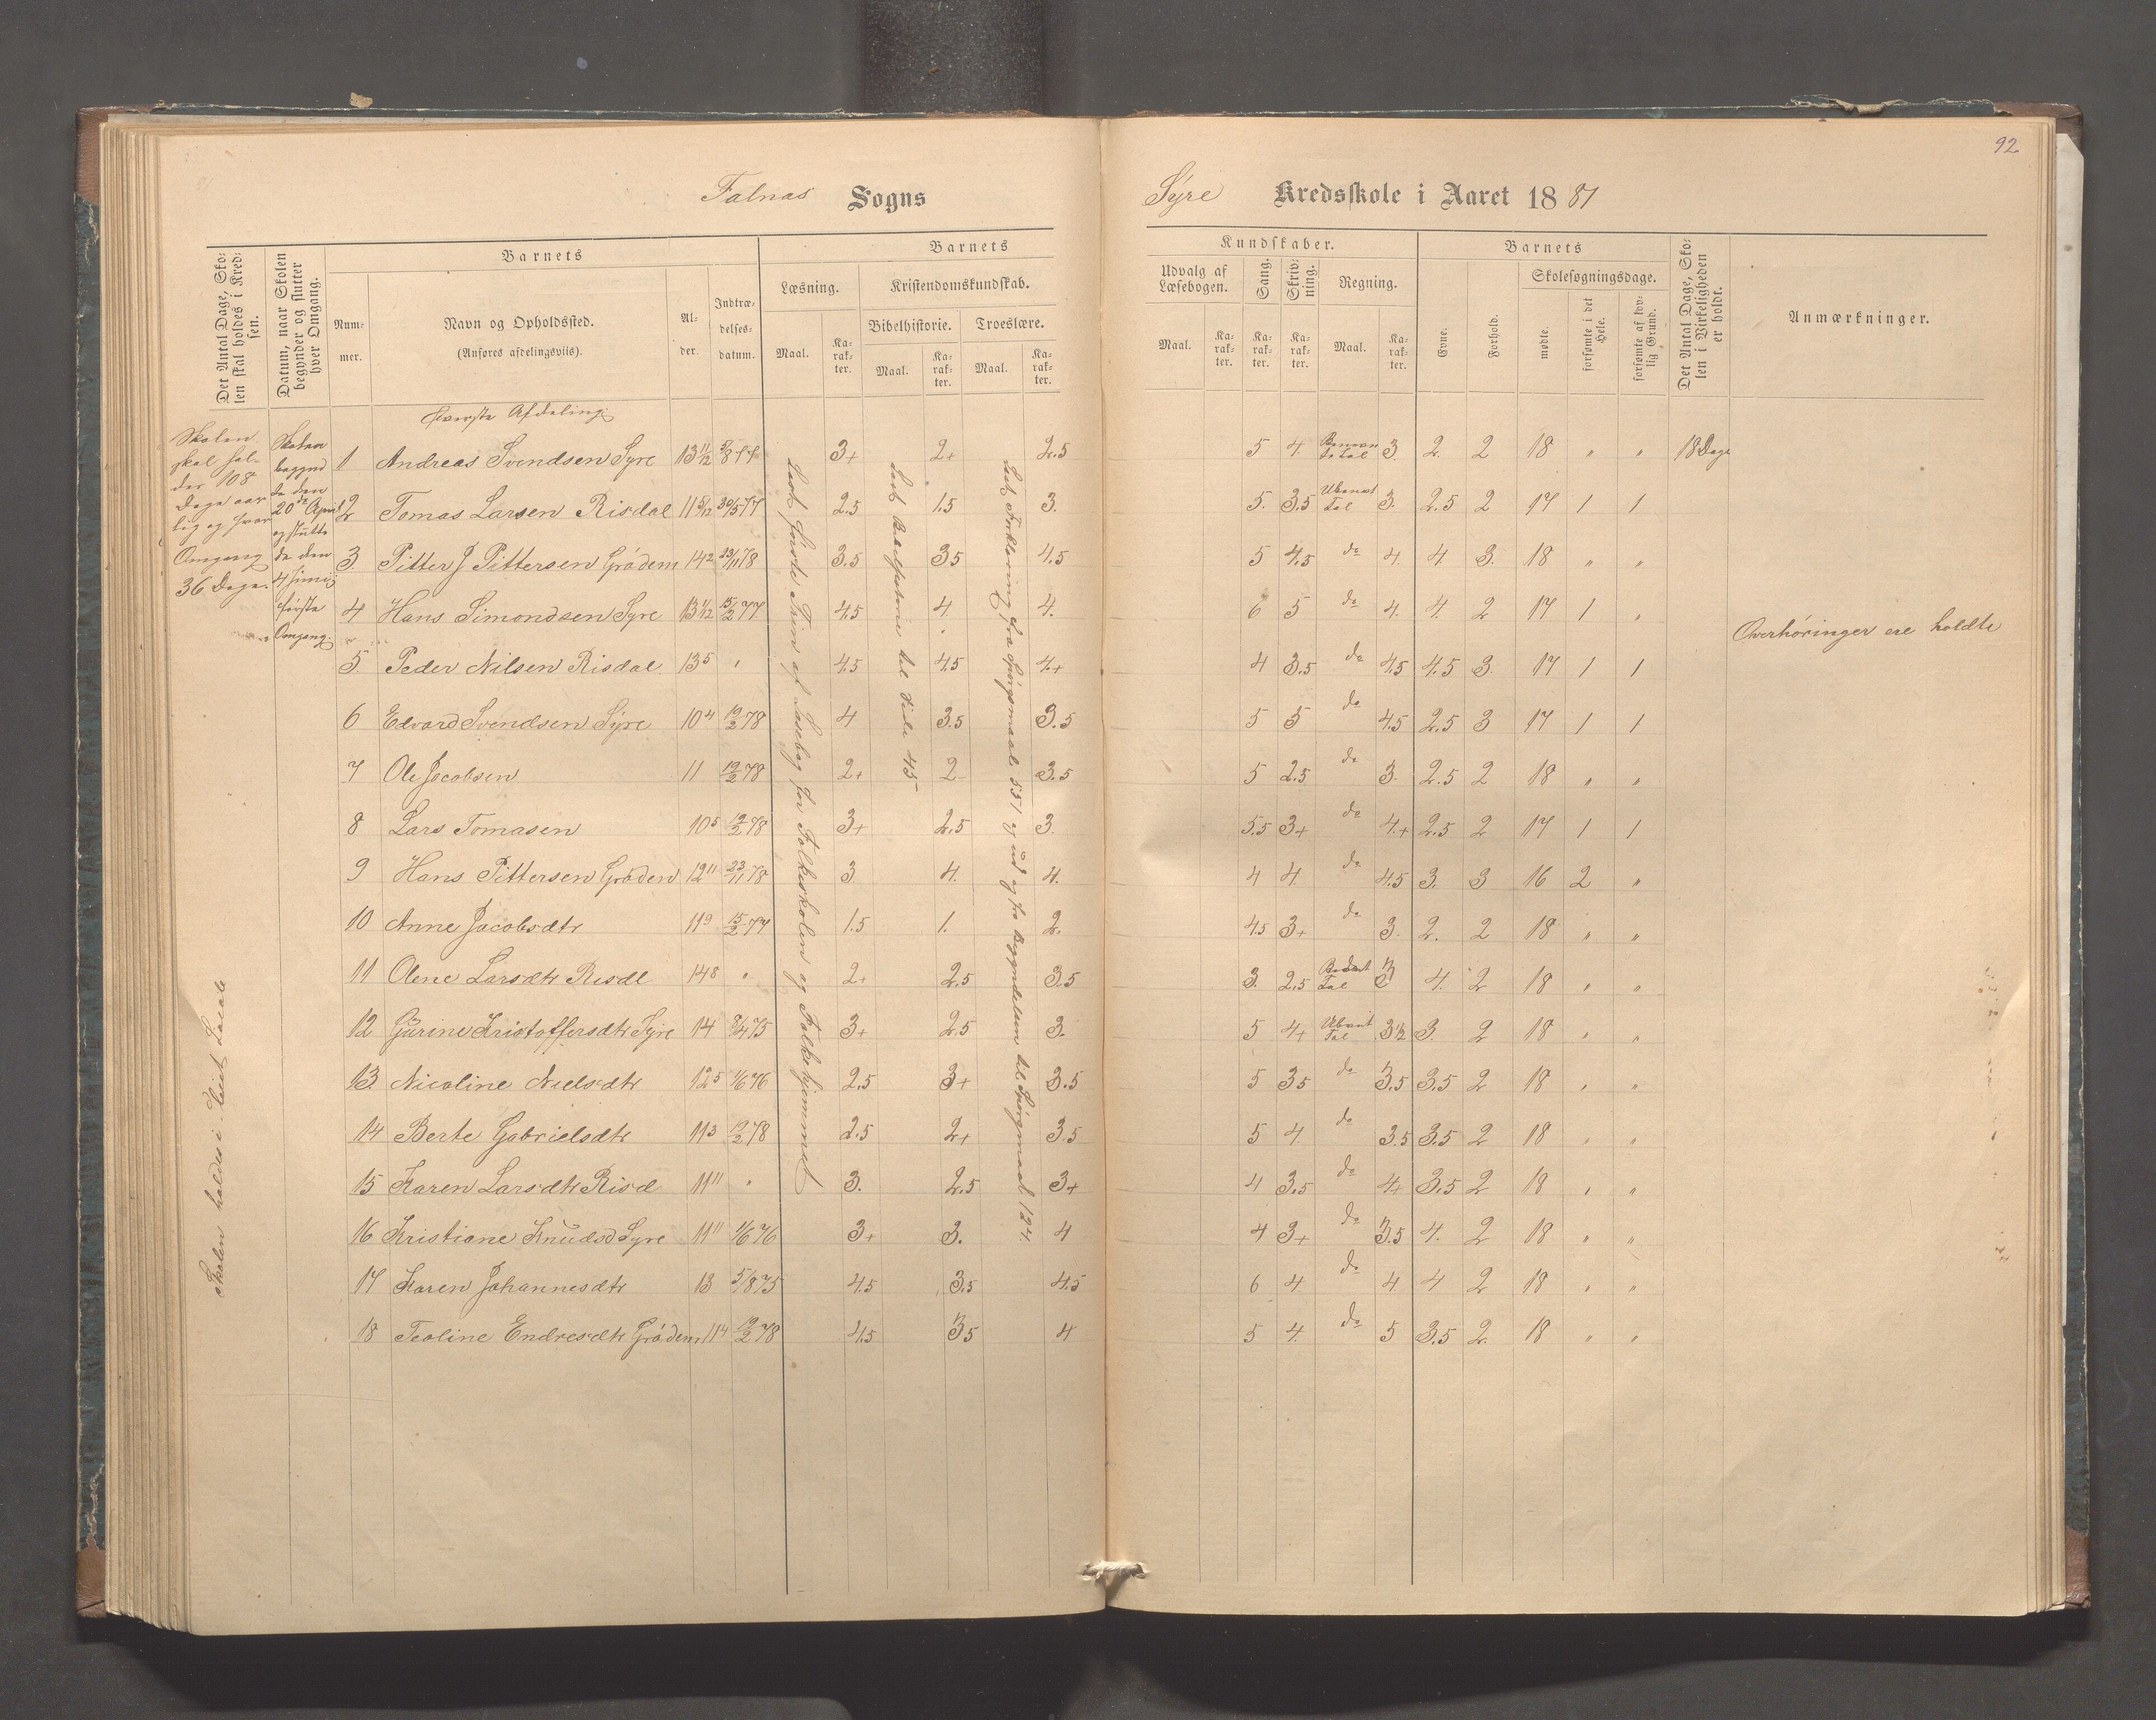 92
Falnas Sogns
Syre Kredsskole i Aaret 1881
Det Antal Dage, Sko-
len skal holdes i Kred-
sen.
Datum, naar Skolen
begynder og slutter
hver Omgang.
Barnets
Num-
mer.
Navn og Opholdssted.
(Anføres afdelingsviis).
Al-
der.
Indtræ-
delses-
datum.
Barnets
Læsning.
Maal.
Ka-
rak-
ter.
Kristendomskundskab.
Bibelhistorie.
Maal.
Ka-
rak-
ter.
Troeslære.
Maal.
Ka-
rak-
ter.
Kundskaber.
Udvalg af
Læsebogen.
Maal.
Ka-
rak-
ter.
Sang.
Ka-
rak-
ter.
Skriv-
ning.
Ka-
rak-
ter.
Regning.
Maal.
Ka-
rak-
ter.
Barnets
Evne.
Forhold.
Skolesøgningsdage.
mødte.
forsømte i det
Hele.
forsømte af lov-
lig Grund.
Det Antal Dage, Sko-
len i Virkeligheden
er holdt.
Anmærkninger.
Skolen
skal hol-
des 108
Dage aar
lig og hver
Omgang
36 Dage.
Skolen
begynd
te den
20de April
og slutte
de den
4 Juni
første
Omgang.
Første Afdeling
1 Andreas Svendsen Syre 13 11/12 5/8 77 3+ 2+ 2.5 5 4. Tal 3. 2. 2 18 " " 18 Dage
2 Tomas Larsen Risdal 11 5/12 30/5 77 2.5 1.5 3. 5. 3.5 Ubenæt Tal 3. 2.5 2 17 1 1
3. Pitter J Pittersen Grødem 14 2 23/11 78 3.5 3.5 4.5 5 4.5 do 4. 4. 3. 18 " "
4 Hans Simondsen Syre 13 1/12 15/2 77 4.5 4 4. 6 5 do 4. 4. 2 17 1 "
5. Peder Nilsen Risdal 13 5 " 4.5 4.5 4.+ 4 3.5 do 4.5 4.5 3. 17 1 1
6 Edvard Svendsen Syre 10 4 19/2 78 4 3.5 3.5 5 5 do 4.5 2.5 3 17 1 1
7 Ole Jacobsen 11 19/2 78 2+ 2 3.5 5 2.5 do 3. 2.5 2 18 " "
8 Lars Tomasen 10 5 19/2 78 3+ 2.5 3. 5.5 3+ do 4.+ 2.5 2 17 1 1
9 Hans Pittersen Grødem 12 11 23/11 78 3 4. 4. 4 4. do 4.5 3. 3 16 2 "
10 Anne Jacobsdtr 11 9 15/2 77 1.5 1. 2. 4.5 3+ do 3. 2. 2 18 " "
11 Olene Larsdtr Risdl 14 8 " 2+ 2.5 3.5 3. 2.5 Tal 3 4. 2 18 " "
12 Gurine Kristoffersdtr Syre 14 8/4 75 3+ 2.5 3. 5 4+ Tal 3 1/2 3. 2 18 " "
13 Nicoline Nielsdtr 12 5 1/6 76 2.5 3+ 3.5 5 3.5 do 3.5 3.5 2 18 " "
14 Berte Gabrielsdtr 11 3 19/2 78 2.5 2+ 3.5 5 4. do 3.5 3.5 2 18 " "
15 Karen Larsdtr Risd 11 11 " 3. 2.5 3+ 4 3.5 do 4+ 3.5 2 18 " "
16 Kristiane Knudsd Syre 11 11 1/6 76 3+ 3. 4 4 3+ do 3.5 4. 2 18 " "
17 Karen Johannesdtr 13 5/8 75 4.5 3.5 4.5 6 4 do 4. 4 2 18 " "
18 Teoline Endresdtr Grødem 11 4 19/2 78 4.5 3.5 4 5 4. do 5 3.5 2. 18 " "
Læst første Trin af Læsebog for Folkeskolen og Folkehjemmet
Læst Bibelhistorie til Side 45
Læst Forklaring fra Spørgsmaal 551 og ud og fra Begyndelsen til Spørgsmaal 124
Overhøringer ere holdte
Skolen holdes i Leiet Locale